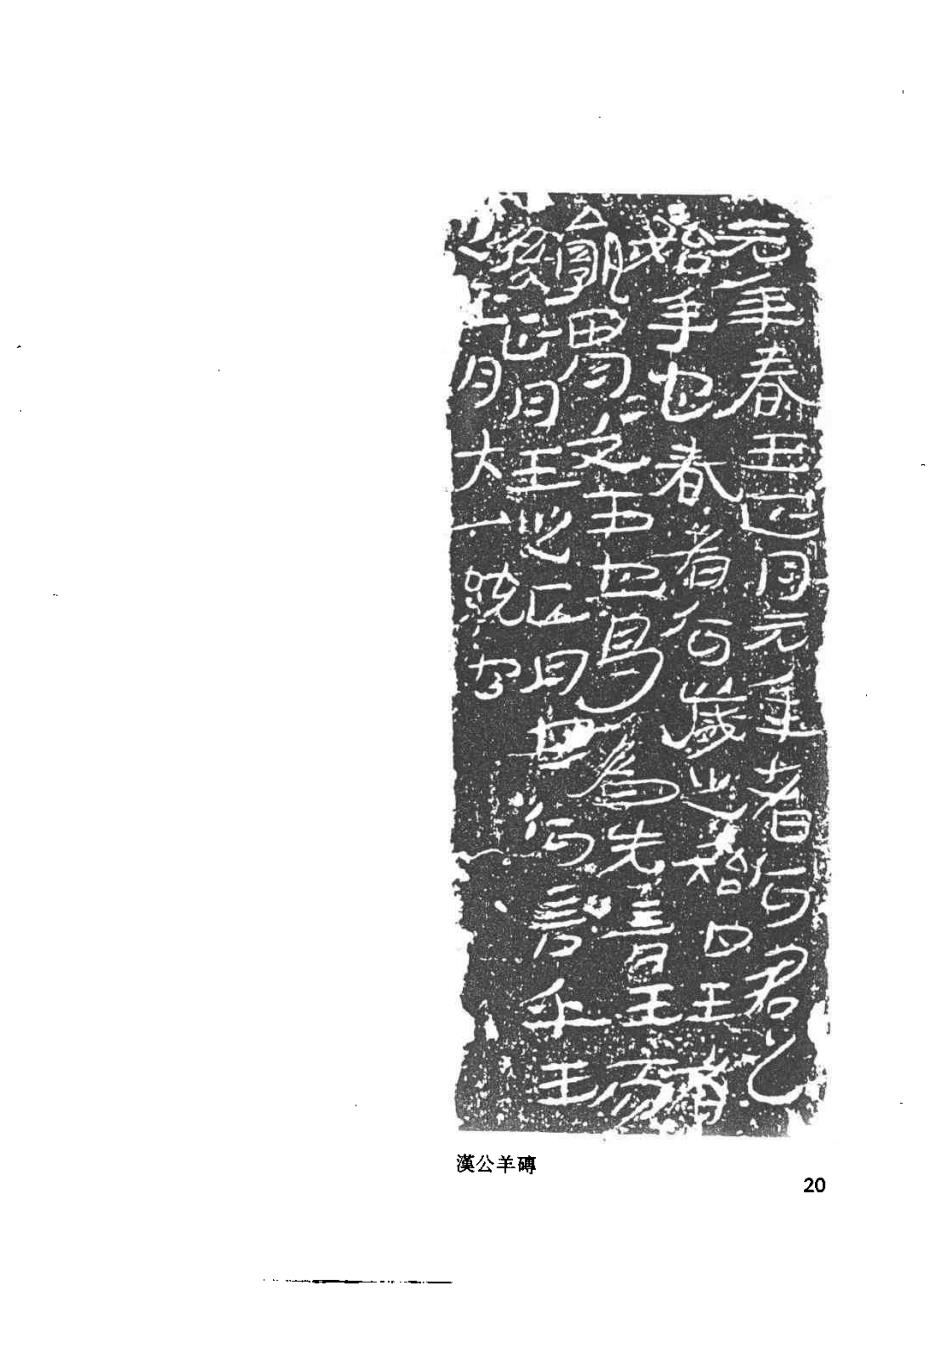 元年春王正月元年者何君之
始年也春者何歲之始也王者
孰胃胃文王也曷為先言王而
後正月王之正月也何言乎王
正月大一統也
漢公羊磚
20